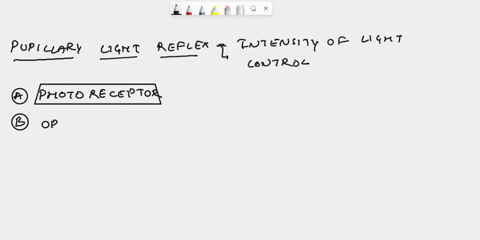 PUPILLARY LIGHT REFLEX → INTENSITY OF LIGHT
CONTROL
A PHOTO RECEPTOR
B OP